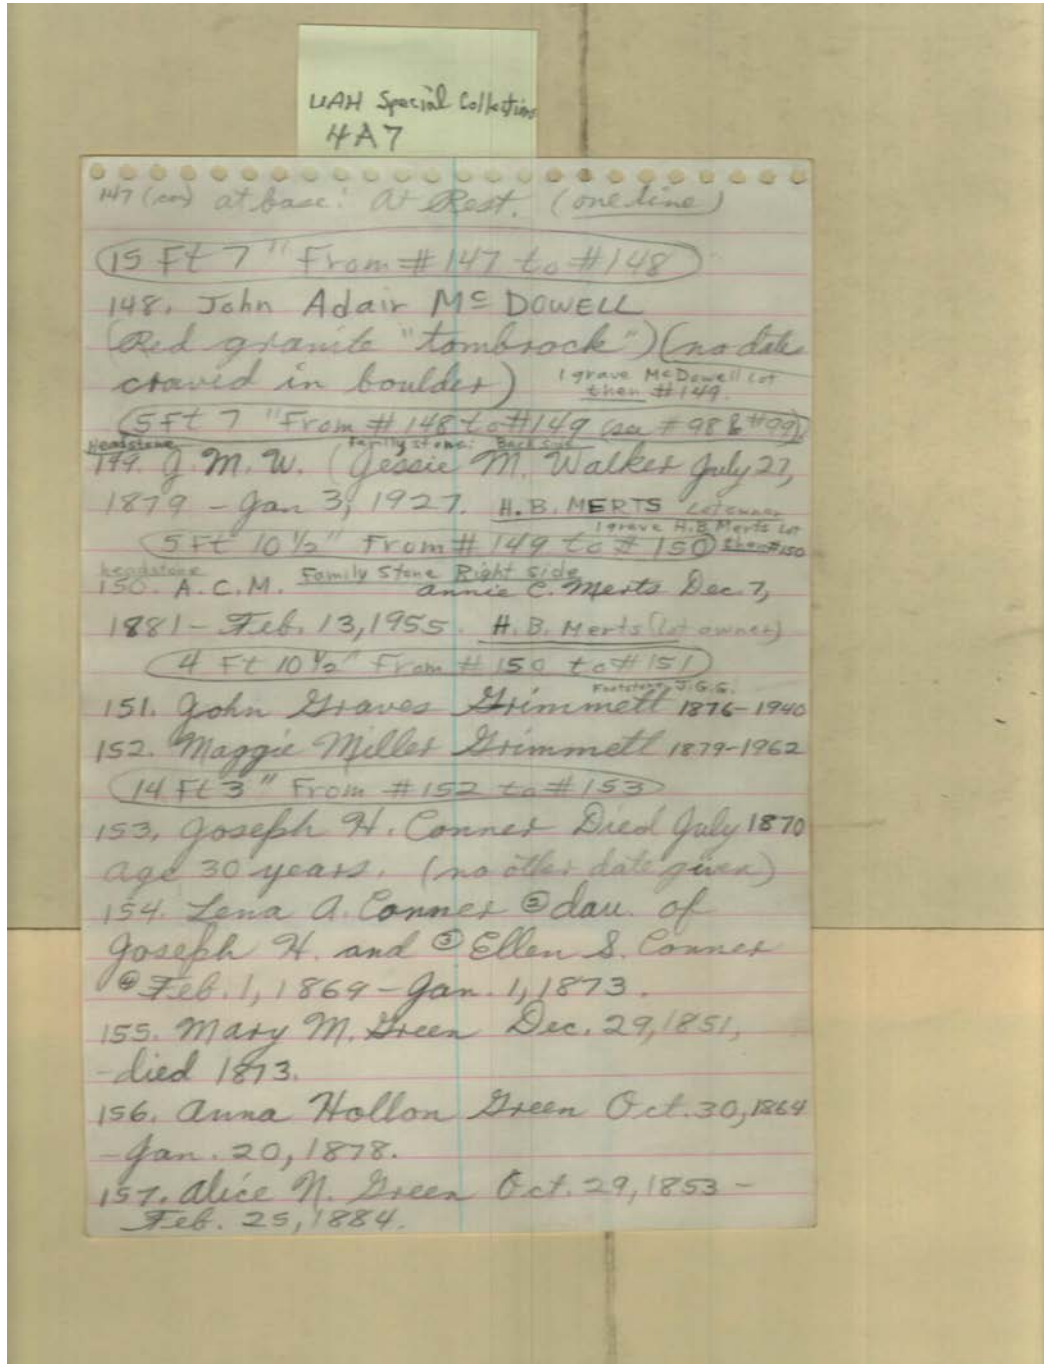 UAH Special Collections
4A7
147 (con) at base: At Rest. (one line)
15 Ft 7" From #147 to #148
148. John Adair McDOWELL
(Red granite "tombrock") (no date
craved in boulder) 1 grave McDowell Lot
then #149.
5 Ft 7" From #148 to #149 (see #98 & #99)
Headstone Family stone: Back side
149. J. M. W. (Jessie M. Walker July 27,
1879 - Jan 3, 1927. H. B. MERTS Lot owner
1 grave H.B Merts Lot
5 Ft 10 1/2" From #149 to #150 then #150
headstone Family Stone Right Side
150. A. C. M. Annie C. Merts Dec. 7,
1881 - Feb. 13, 1955. H. B. Merts (lot owner)
4 Ft 10 1/2" From #150 to #151
Footstone J.G.G.
151. John Graves Grimmett 1876-1940
152. Maggie Miller Grimmett 1879-1962
14 Ft 3" From #152 to #153
153. Joseph H. Conner Died July 1870
age 30 years. (no other date given)
154. Lena A. Conner ② dau. of
Joseph H. and ③ Ellen S. Conner
④ Feb. 1, 1869 - Jan. 1, 1873.
155. Mary M. Green Dec. 29, 1851,
- died 1873.
156. Anna Hollon Green Oct. 30, 1864
- Jan. 20, 1878.
157. Alice N. Green Oct. 29, 1853 -
Feb. 25, 1884.